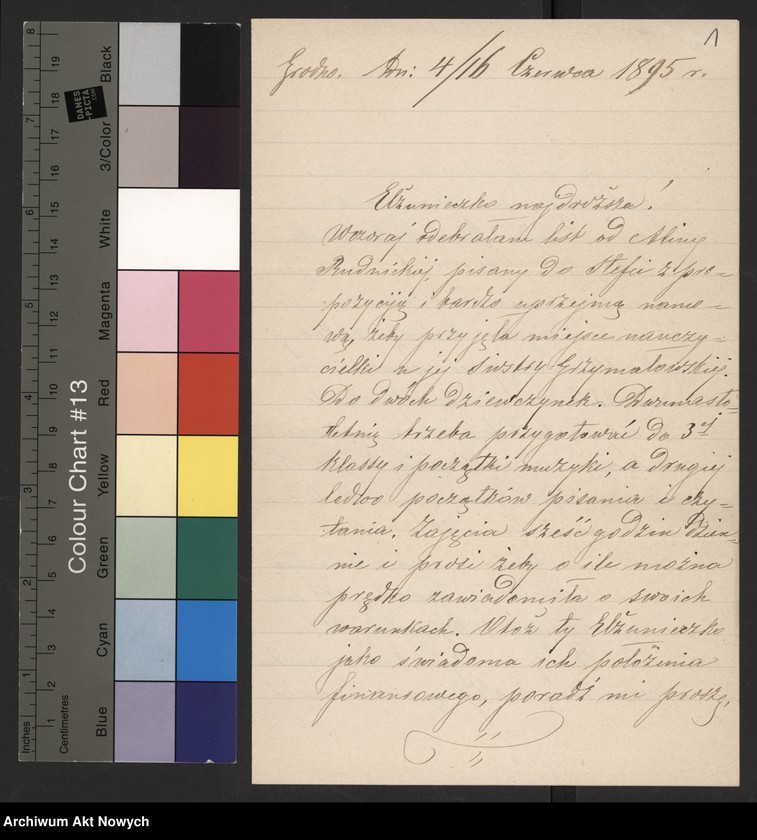 1
Grodno. Dn: 4/16 Czerwca 1895 r.
Elżunieczko najdroższa!
Wczoraj odebrałam list od Aliny
Rudnickiej, pisany do Stefci z pro-
pozycją i bardzo uprzejmą namo-
wą, żeby przyjęła miejsce nauczy-
cielki u jej siostry Grzymałowskiej.
Do dwóch dziewczynek. Dwunasto-
letnią trzeba przygotować do 3ej
klassy i początki muzyki, a drugiej
ledwo początków pisania i czy-
tania. Zajęcia sześć godzin dzien-
nie i prosi żeby o ile można
prędko zawiadomiła o swoich
warunkach. Otóż ty Elżunieczko
jako świadoma ich położenia
finansowego, poradź mi proszę,
Inches
Centimetres
1
2
3
4
5
6
7
8
1
2
3
4
5
6
7
8
9
10
11
12
13
14
15
16
17
18
19
Colour Chart #13
Blue
Cyan
Green
Yellow
Red
Magenta
White
3/Color
Black
DANES
-PICTA
.COM
Archiwum Akt Nowych